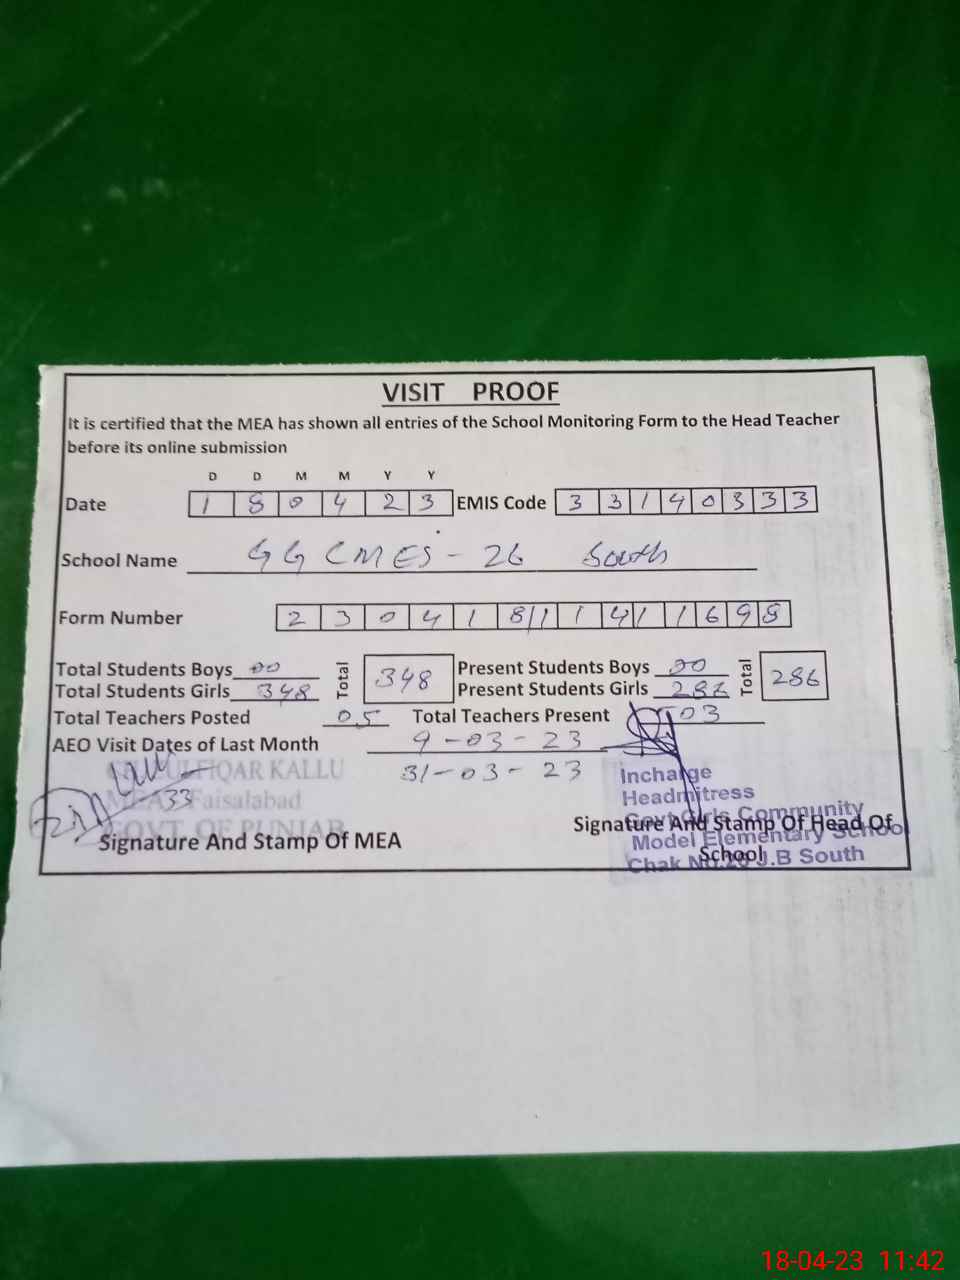 VISIT PROOF
It is certified that the MEA has shown all entries of the School Monitoring Form to the Head Teacher
before its online submission
D D M M Y Y
Date 1 8 0 4 2 3 EMIS Code 3 3 1 4 0 3 3 3
School Name GGCMES - 26 South
Form Number 2 3 0 4 1 8 1 1 4 1 1 6 9 8
Total Students Boys 00 Total 348 Present Students Boys 00 Total 286
Total Students Girls 348 Present Students Girls 286
Total Teachers Posted 05 Total Teachers Present 03
AEO Visit Dates of Last Month 9-03-23
31-03-23
ZULFIQAR KALLU
MEA 33 Faisalabad
GOVT. OF PUNJAB
Signature And Stamp Of MEA
Incharge
Headmitress
Govt Girls Community
Model Elementary School
Chak No.26 J.B South
Signature And Stamp Of Head Of
School
18-04-23 11:42